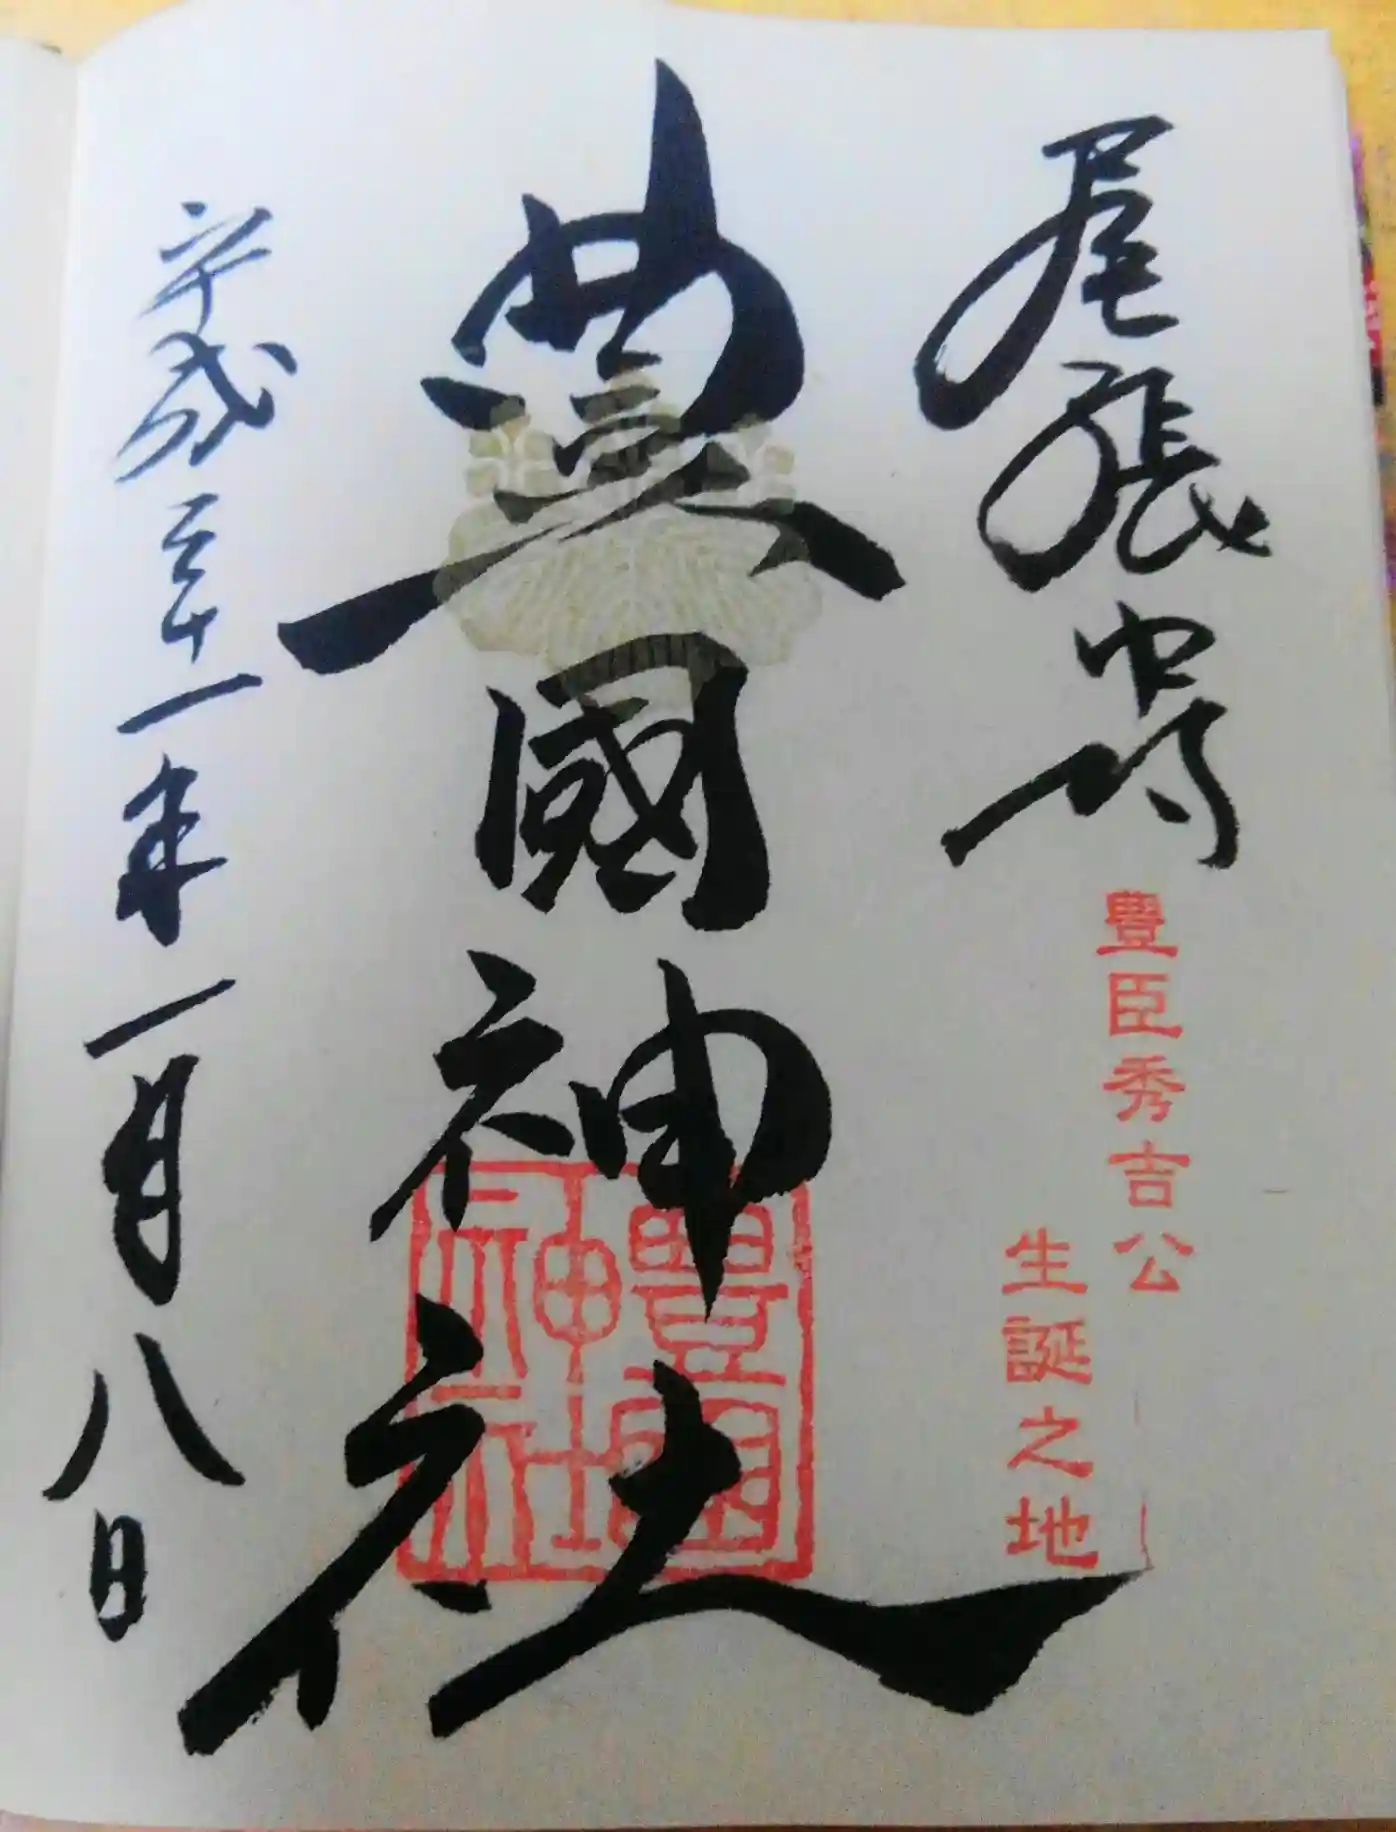 尾張中村
豊臣秀吉公
生誕之地
豐國神社
豊國
神社
平成三十一年一月八日